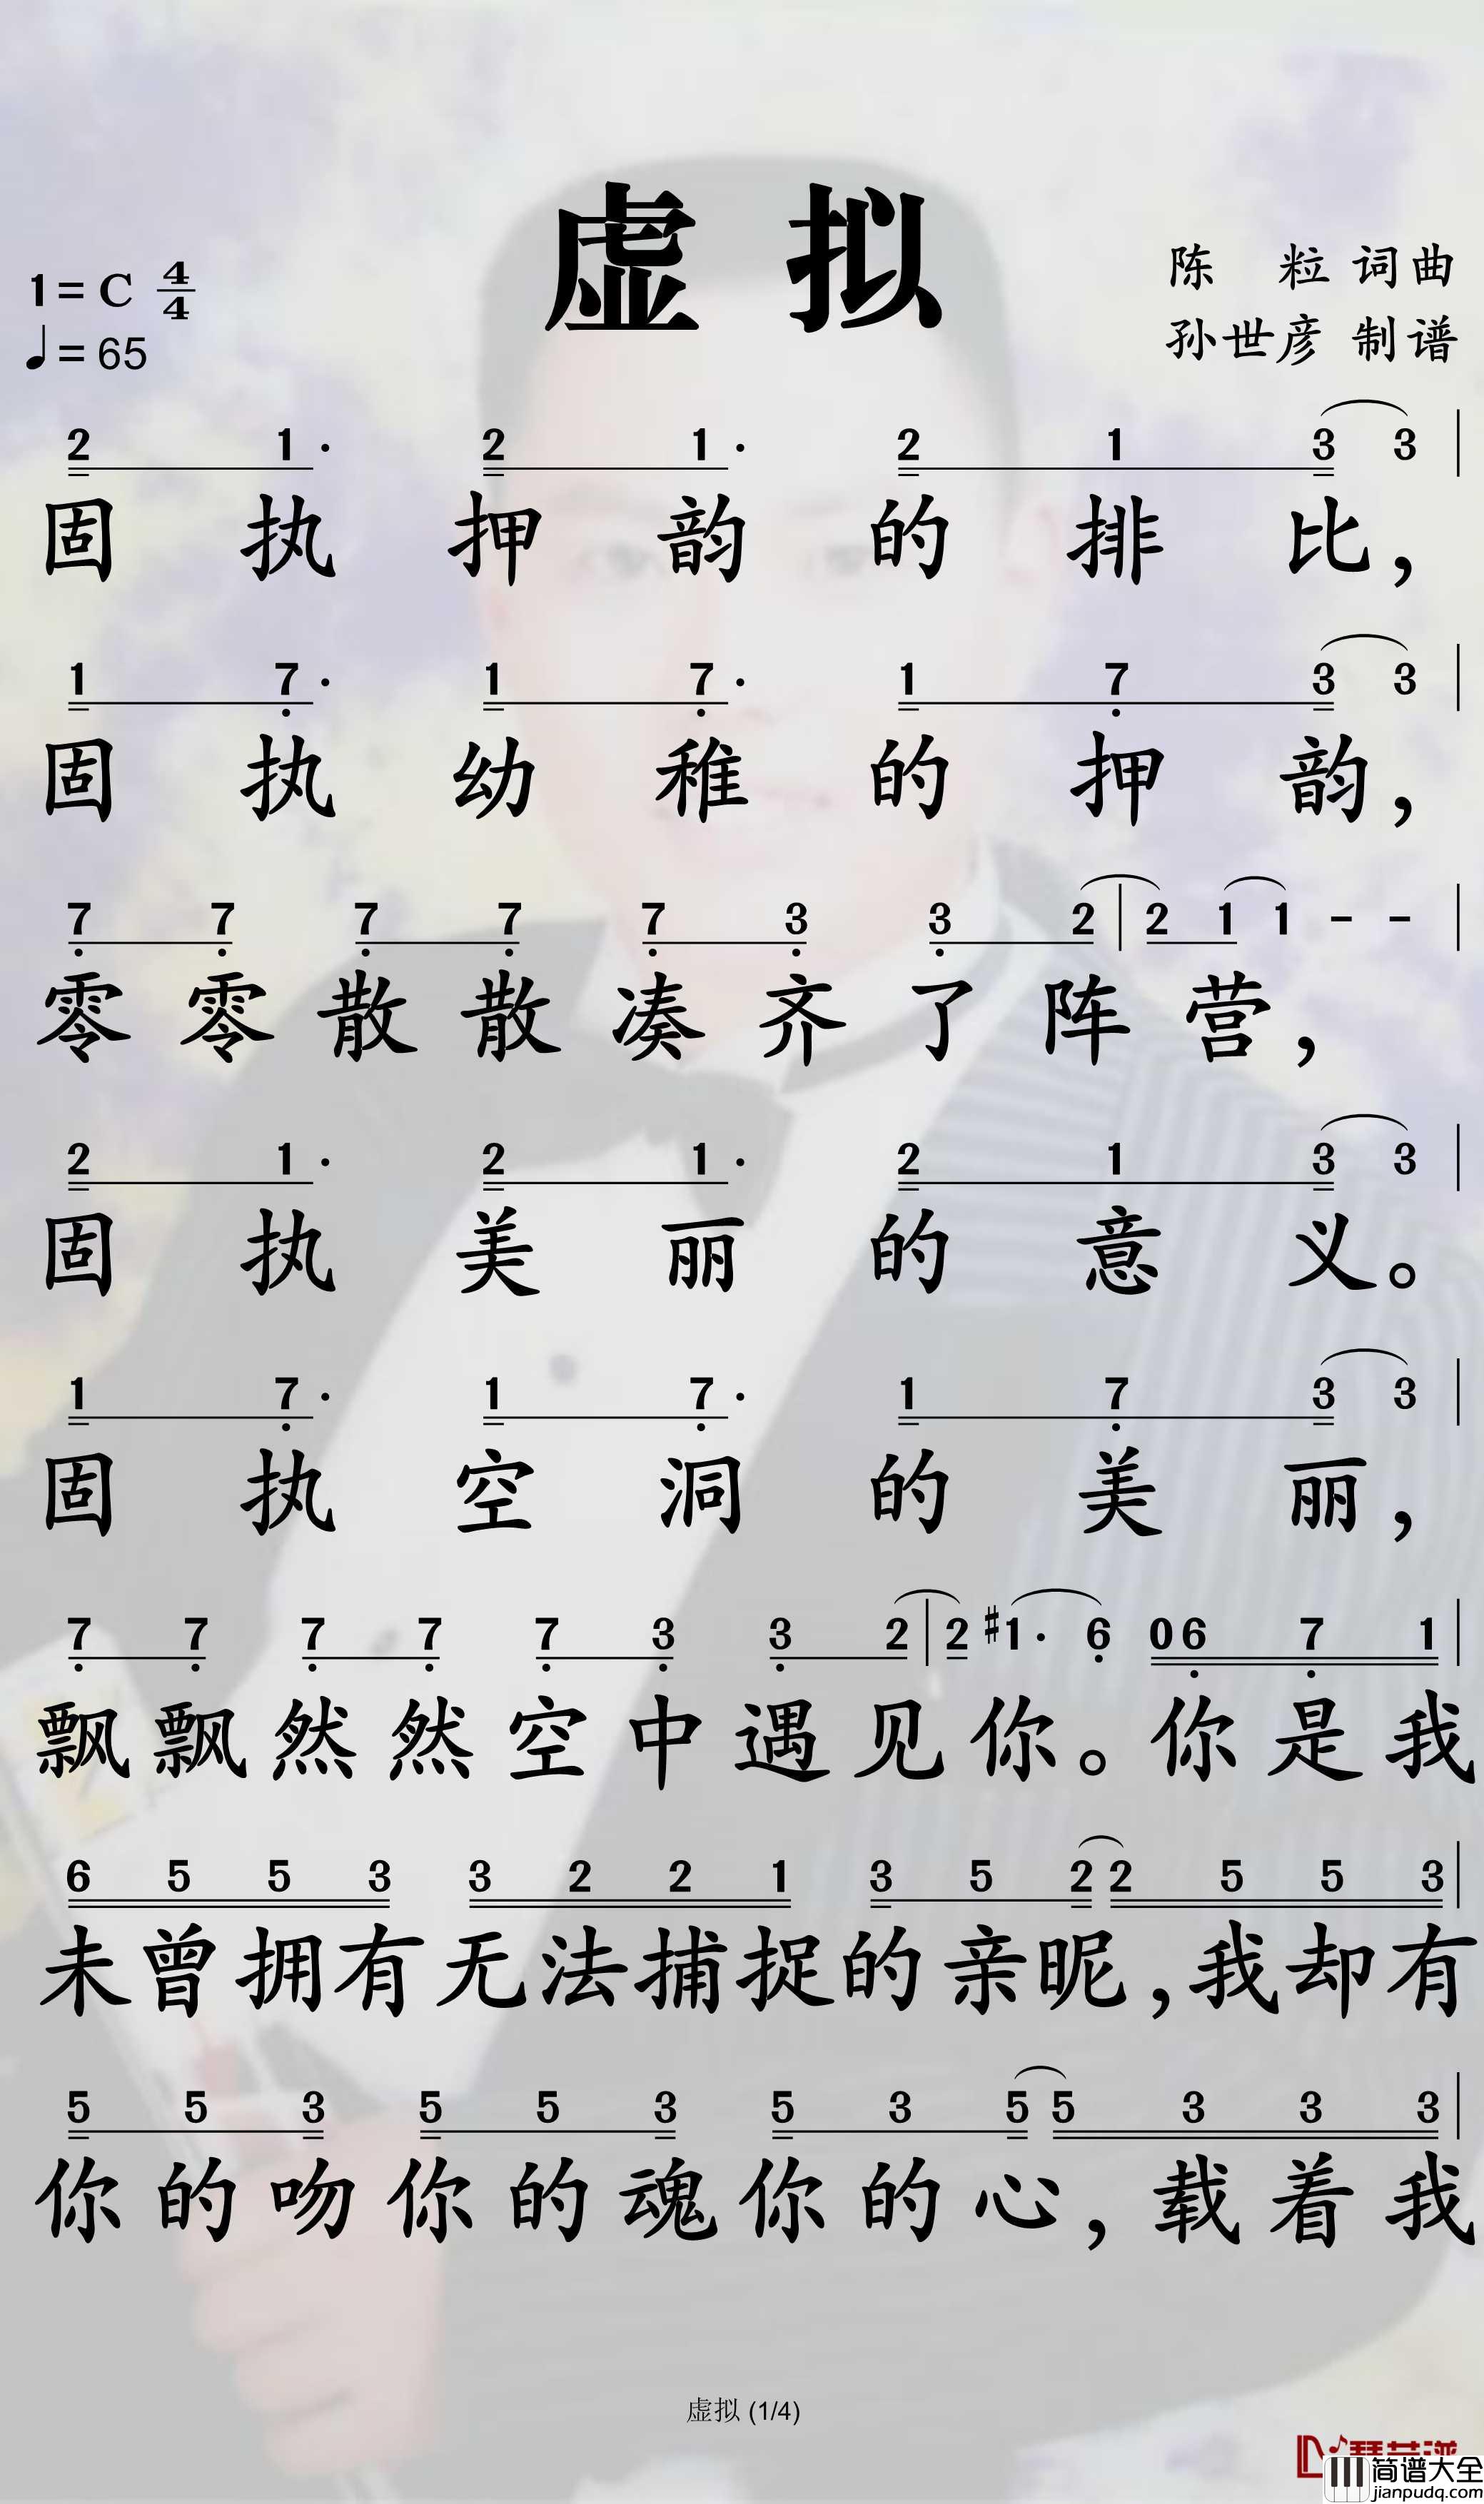 虚拟
1=C 4/4
♩=65
陈 粒 词曲
孙世彦 制谱
2 1· 2 1· 2 1 3 3
固执押韵的排比，
1 7· 1 7· 1 7 3 3
固执幼稚的押韵，
7 7 7 7 7 3 3 2 | 2 1 1 - -
零零散散凑齐了阵营，
2 1· 2 1· 2 1 3 3
固执美丽的意义。
1 7· 1 7· 1 7 3 3
固执空洞的美丽，
7 7 7 7 7 3 3 2 | 2 #1· 6 0 6 7 1
飘飘然然空中遇见你。你是我
6 5 5 3 3 2 2 1 3 5 2 2 5 5 3
未曾拥有无法捕捉的亲昵，我却有
5 5 3 5 5 3 5 3 5 5 3 3 3
你的吻你的魂你的心，载着我
虚拟 (1/4)
简谱大全
jianpudq.com